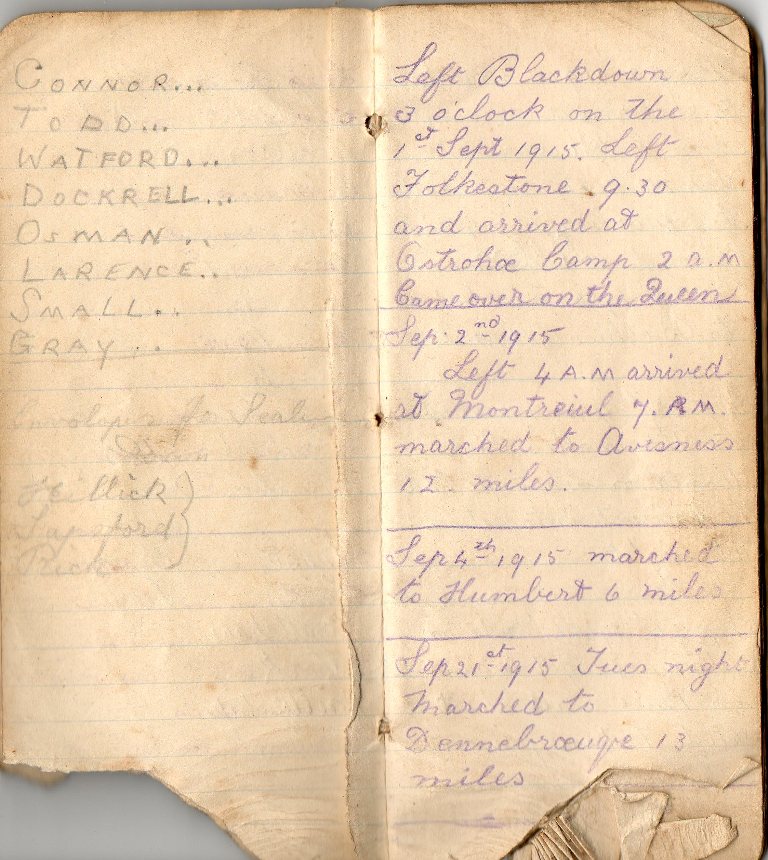 CONNOR...
TODD...
WATFORD...
DOCKRELL...
OSMAN..
LARENCE..
SMALL..
GRAY..
Envelopes for
Hillick}
Lapsford}
Rick
Left Blackdown
3 o'clock on the
1st Sept 1915. Left
Folkestone . 9.30
and arrived at
Ostrohoe Camp 2 a.m
Came over on the Queen
Sep. 2nd 1915
Left 4 A.M arrived
at Montreiul 7. A.M.
marched to Avesness
12. miles.
Sep 4th 1915 marched
to Humbert 6 miles
Sep 21st 1915 Tues night
Marched to
Dennebrœuqe 13
miles